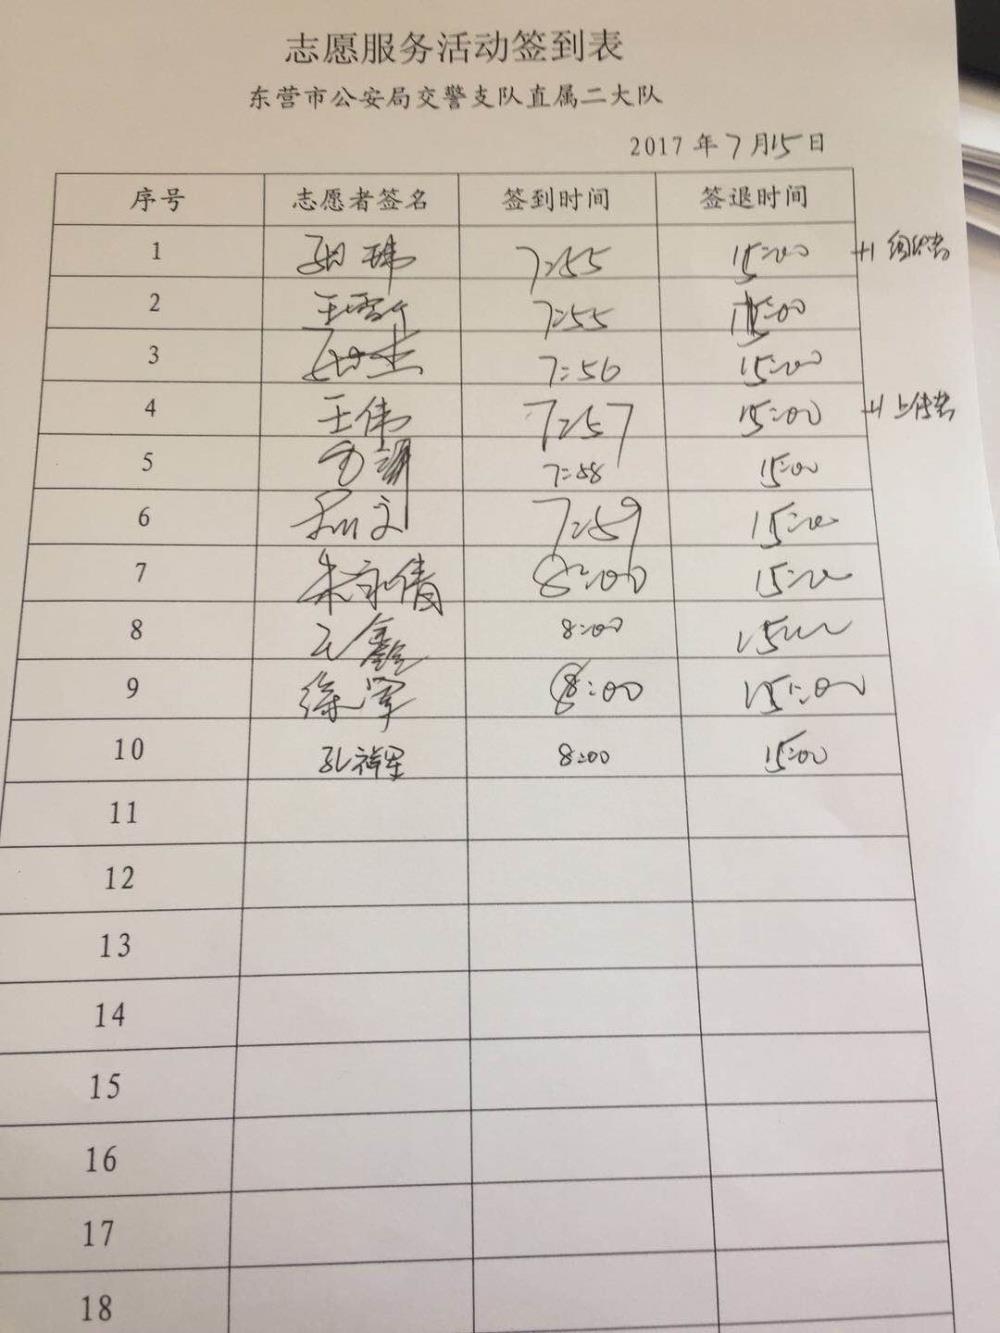 志愿服务活动签到表
东营市公安局交警支队直属二大队
2017年7月15日
序号 志愿者签名 签到时间 签退时间
1 7:55 15:00 +1 组织者
2 7:55 15:00
3 7:56 15:00
4 王伟 7:57 15:00 +1 上传者
5 7:58 15:00
6 7:59 15:00
7 朱永倩 8:00 15:00
8 鑫 8:00 15:00
9 徐军 8:00 15:00
10 孔祥军 8:00 15:00
11
12
13
14
15
16
17
18